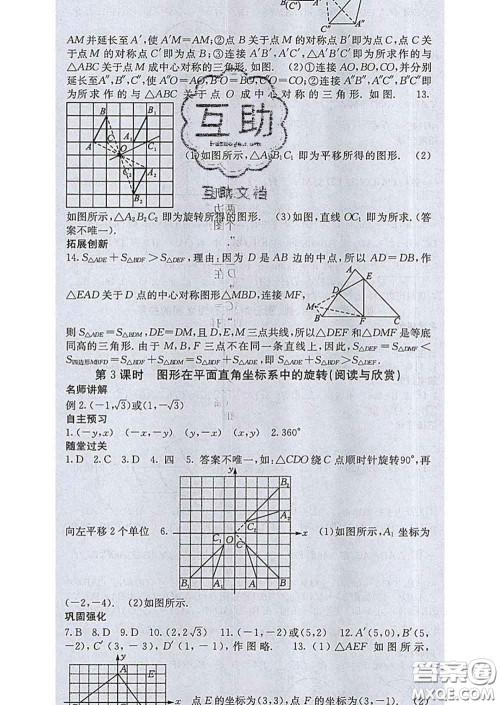 B(C') A''
AM并延长至A',使A'M=AM;②点B关于点M的对称点B'即为点C,点C关
于点M的对称点C'即为点B;③连接A'B',A'C',△A'B'C'即为所求作的与
△ABC关于点M成中心对称的三角形.如图. (2)①连接AO,BO,CO,并分别
延长至A'',B'',C'',使A''O=AO,B''O=BO,C''O=CO;②连接A''B'',B''C'',A''C''即为
所求作的与△ABC关于点O成中心对称的三角形.如图. 13.
互助
互助文档
(1)如图所示,△A₁B₁C₁即为平移所得的图形. (2)
如图所示,△A₂B₂C₂即为旋转所得的图形. (3)如图,直线OC₁即为所求.(答
案不唯一).
拓展创新
14.S△ADE+S△BDF>S△DEF,理由:因为D是AB边的中点,所以AD=DB,作
△EAD关于D点的中心对称图形△MBD,连接MF,
A E D M B F C
则S△ADE=S△BDM,DE=DM,且D,E,M三点共线,所以△DEF和△DMF是等底
同高的三角形.由于M,B,F三点不在同一条直线上,因此,S△DEF=S△DMF<
S四边形MBFD=S△BDF+S△BDM=S△BDF+S△ADE,因此,S△ADE+S△BDF>S△DEF.
第3课时 图形在平面直角坐标系中的旋转(阅读与欣赏)
名师讲解
例2.(-1,√3)或(1,-√3)
自主预习
1.(-y,x) (-x,-y) (y,-x) (y,x) 2.360°
随堂过关
1.D 2.C 3.D 4.四 5.答案不唯一,如:△CDO绕C点顺时针旋转90°,再
向左平移2个单位 6. (1)如图所示,A₁坐标为
(-2,-4). (2)如图所示.
巩固强化
7.B 8.D 9.D 10.(2,2√3) 11.(-1,-2)或(5,2) 12.A'(5,0),B'(5,
-2),C'(3,-3),D'(1,-1),作图略. 13.(1)△AEF如图所示,
点E的坐标为(3,3),点F的坐标为(3,-1). (2)
答案圈
MXQE.COM